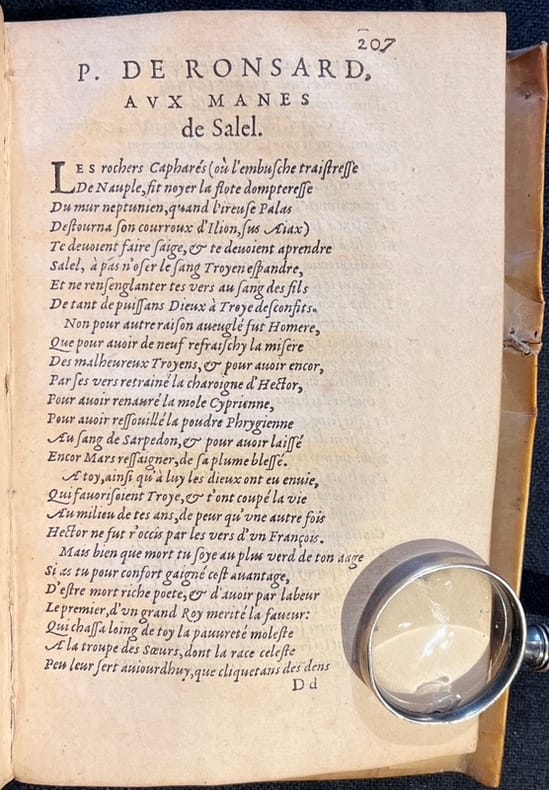 207
P. DE RONSARD,
AVX MANES
de Salel.
LES rochers Capharés (où l'embusche traistresse
De Nauple, fit noyer la flote dompteresse
Du mur neptunien, quand l'ireuse Palas
Destourna son courroux d'Ilion, sus Aiax)
Te deuoient faire saige, & te deuoient aprendre
Salel, à pas n'oser le sang Troyen espandre,
Et ne rensenglanter tes vers au sang des fils
De tant de puissans Dieux à Troye desconfits.
Non pour autre raison aueuglé fut Homere,
Que pour auoir de neuf refraischy la misere
Des malheureux Troyens, & pour auoir encor,
Par ses vers retrainé la charoigne d'Hector,
Pour auoir renauré la mole Cyprienne,
Pour auoir ressouillé la poudre Phrygienne
Au sang de Sarpedon, & pour auoir laissé
Encor Mars ressaigner, de sa plume blessé.
A toy, ainsi qu'à luy les dieux ont eu enuie,
Qui fauorisoient Troye, & t'ont coupé la vie
Au milieu de tes ans, de peur qu'vne autre fois
Hector ne fut r'occis par les vers d'vn François.
Mais bien que mort tu soye au plus verd de ton aage
Si as tu pour confort gaigné cest auantage,
D'estre mort riche poete, & d'auoir par labeur
Le premier, d'vn grand Roy merité la faueur:
Qui chassa loing de toy la pauureté moleste
A la troupe des Sœurs, dont la race celeste
Peu leur sert auiourdhuy, que cliquetans des dens
Dd